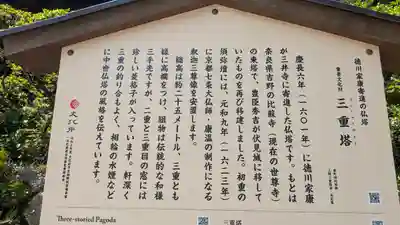 徳川家康寄進の仏塔
重要文化財
三重塔
慶長六年(一六〇一年)に徳川家康
が三井寺に寄進した仏塔です。もとは
奈良県吉野の比蘇寺(現在の世尊寺)
の東塔で、豊臣秀吉が伏見城に移して
いたものを再び移建しました。初重の
須弥壇には、元和九年(一六二三年)
に京都七条大仏師・康温の制作になる
釈迦三尊像を安置します。
塔高は約二十五メートル、三重とも
縁に高欄をつけ、組物は伝統的な和様
三手先ですが、二重と三重目の窓には
珍しい菱格子が入っています。軒深く
三重の釣り合もよく、相輪の水煙など
に中世仏塔の風格を伝えています。
Three-storied Pagoda
三重塔